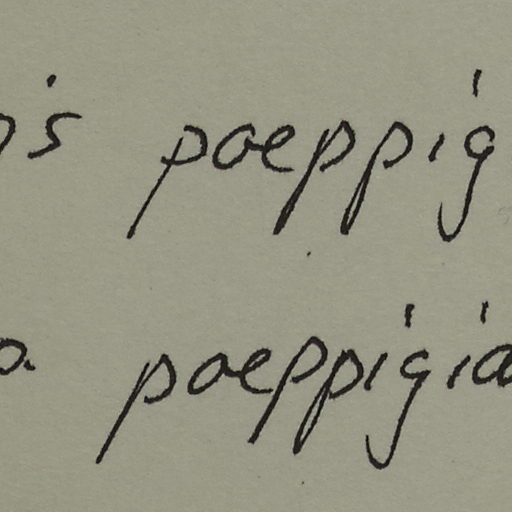 is poeppig
p. poeppigia